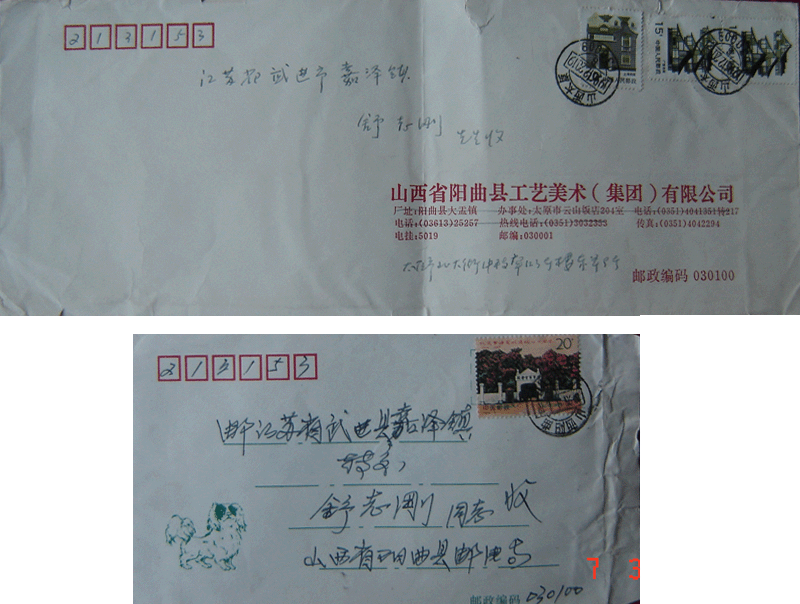 213153
江苏省武进市嘉泽镇
舒志刚 先生收
15分
山西太原
山西省阳曲县工艺美术(集团)有限公司
厂址:阳曲县大盂镇 办事处:太原市云山饭店204室 电话:(0351)4041351转217
电话:(03613)25257 热线电话:(0351)3032333 传真:(0351)4042294
电挂:5019 邮编:030001
邮政编码 030100
213153
20分
邮江苏省武进县嘉泽镇
舒志刚 同志 收
山西省阳曲县邮电局
邮政编码 030100
7 3